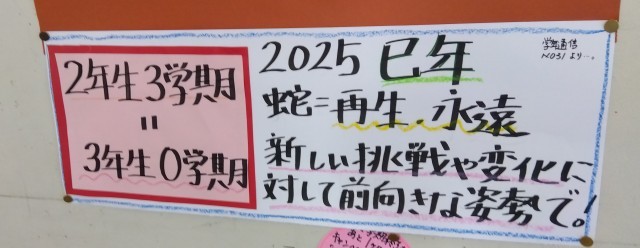 2年生3学期
=
3年生0学期
2025 巳年
学年通信
NO31より…。
蛇=再生、永遠
新しい挑戦や変化に
対して前向きな姿勢で!